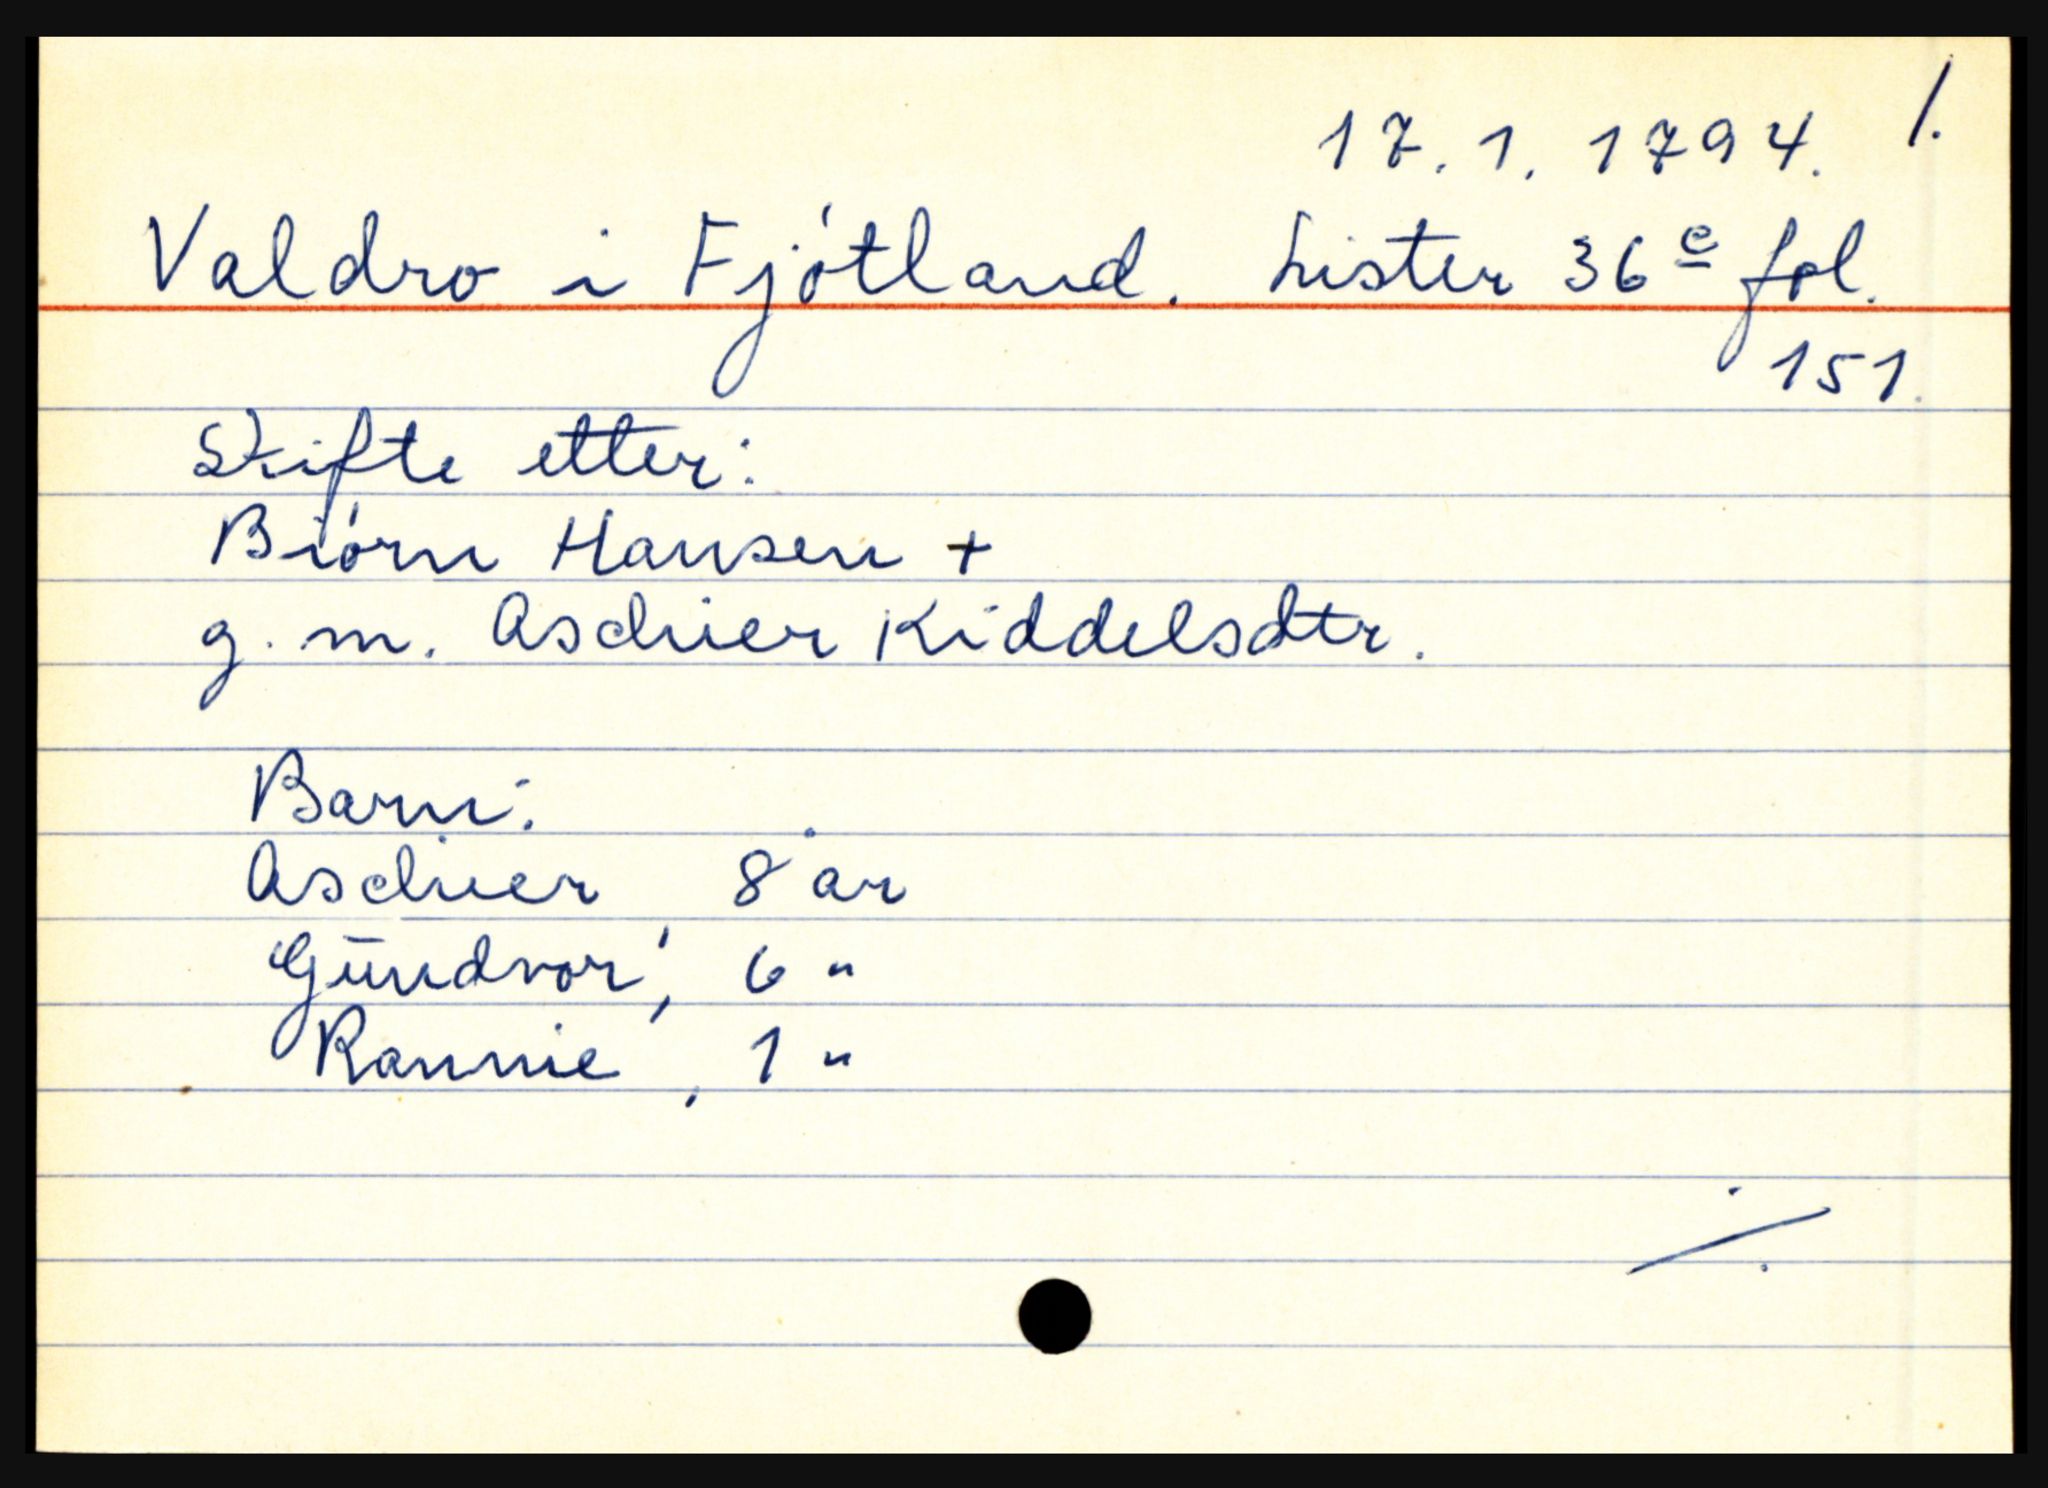 17.1.1794. 1.
Valdro i Fjótland. Lister 36e fol.
151.
Skifte etter:
Biórn Hansen +
g. m. Aschier Kiddelsdtr.
Barn:
Aschier 8 år
Gūndvor, 6 "
Rannie, 1 "